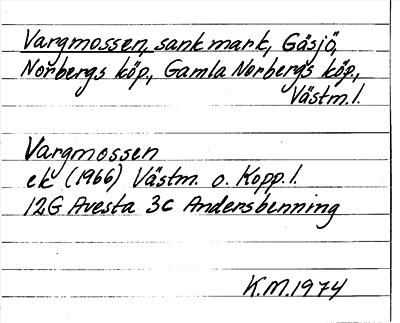 Vargmossen, sank mark, Gäsjö,
Norbergs köp., Gamla Norbergs köp.,
Västm.l.
Vargmossen
ek (1966) Västm. o. Kopp.l.
12G Avesta 3c Andersbenning
K.M.1974